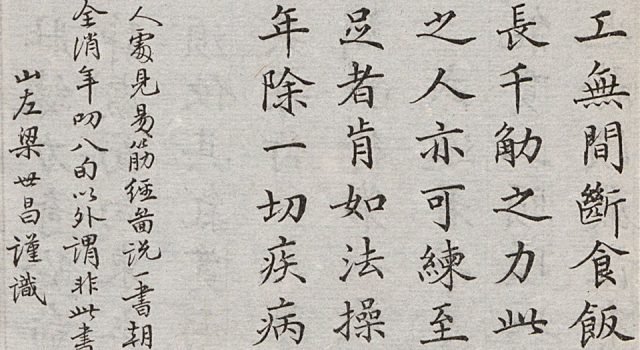 工無間斷食飯
長千觔之力此
之人亦可練至
足者肯如法操
年除一切疾病
人處見易筋經圖說一書朝
全消年叨八旬以外謂非此書
山左梁世昌謹識